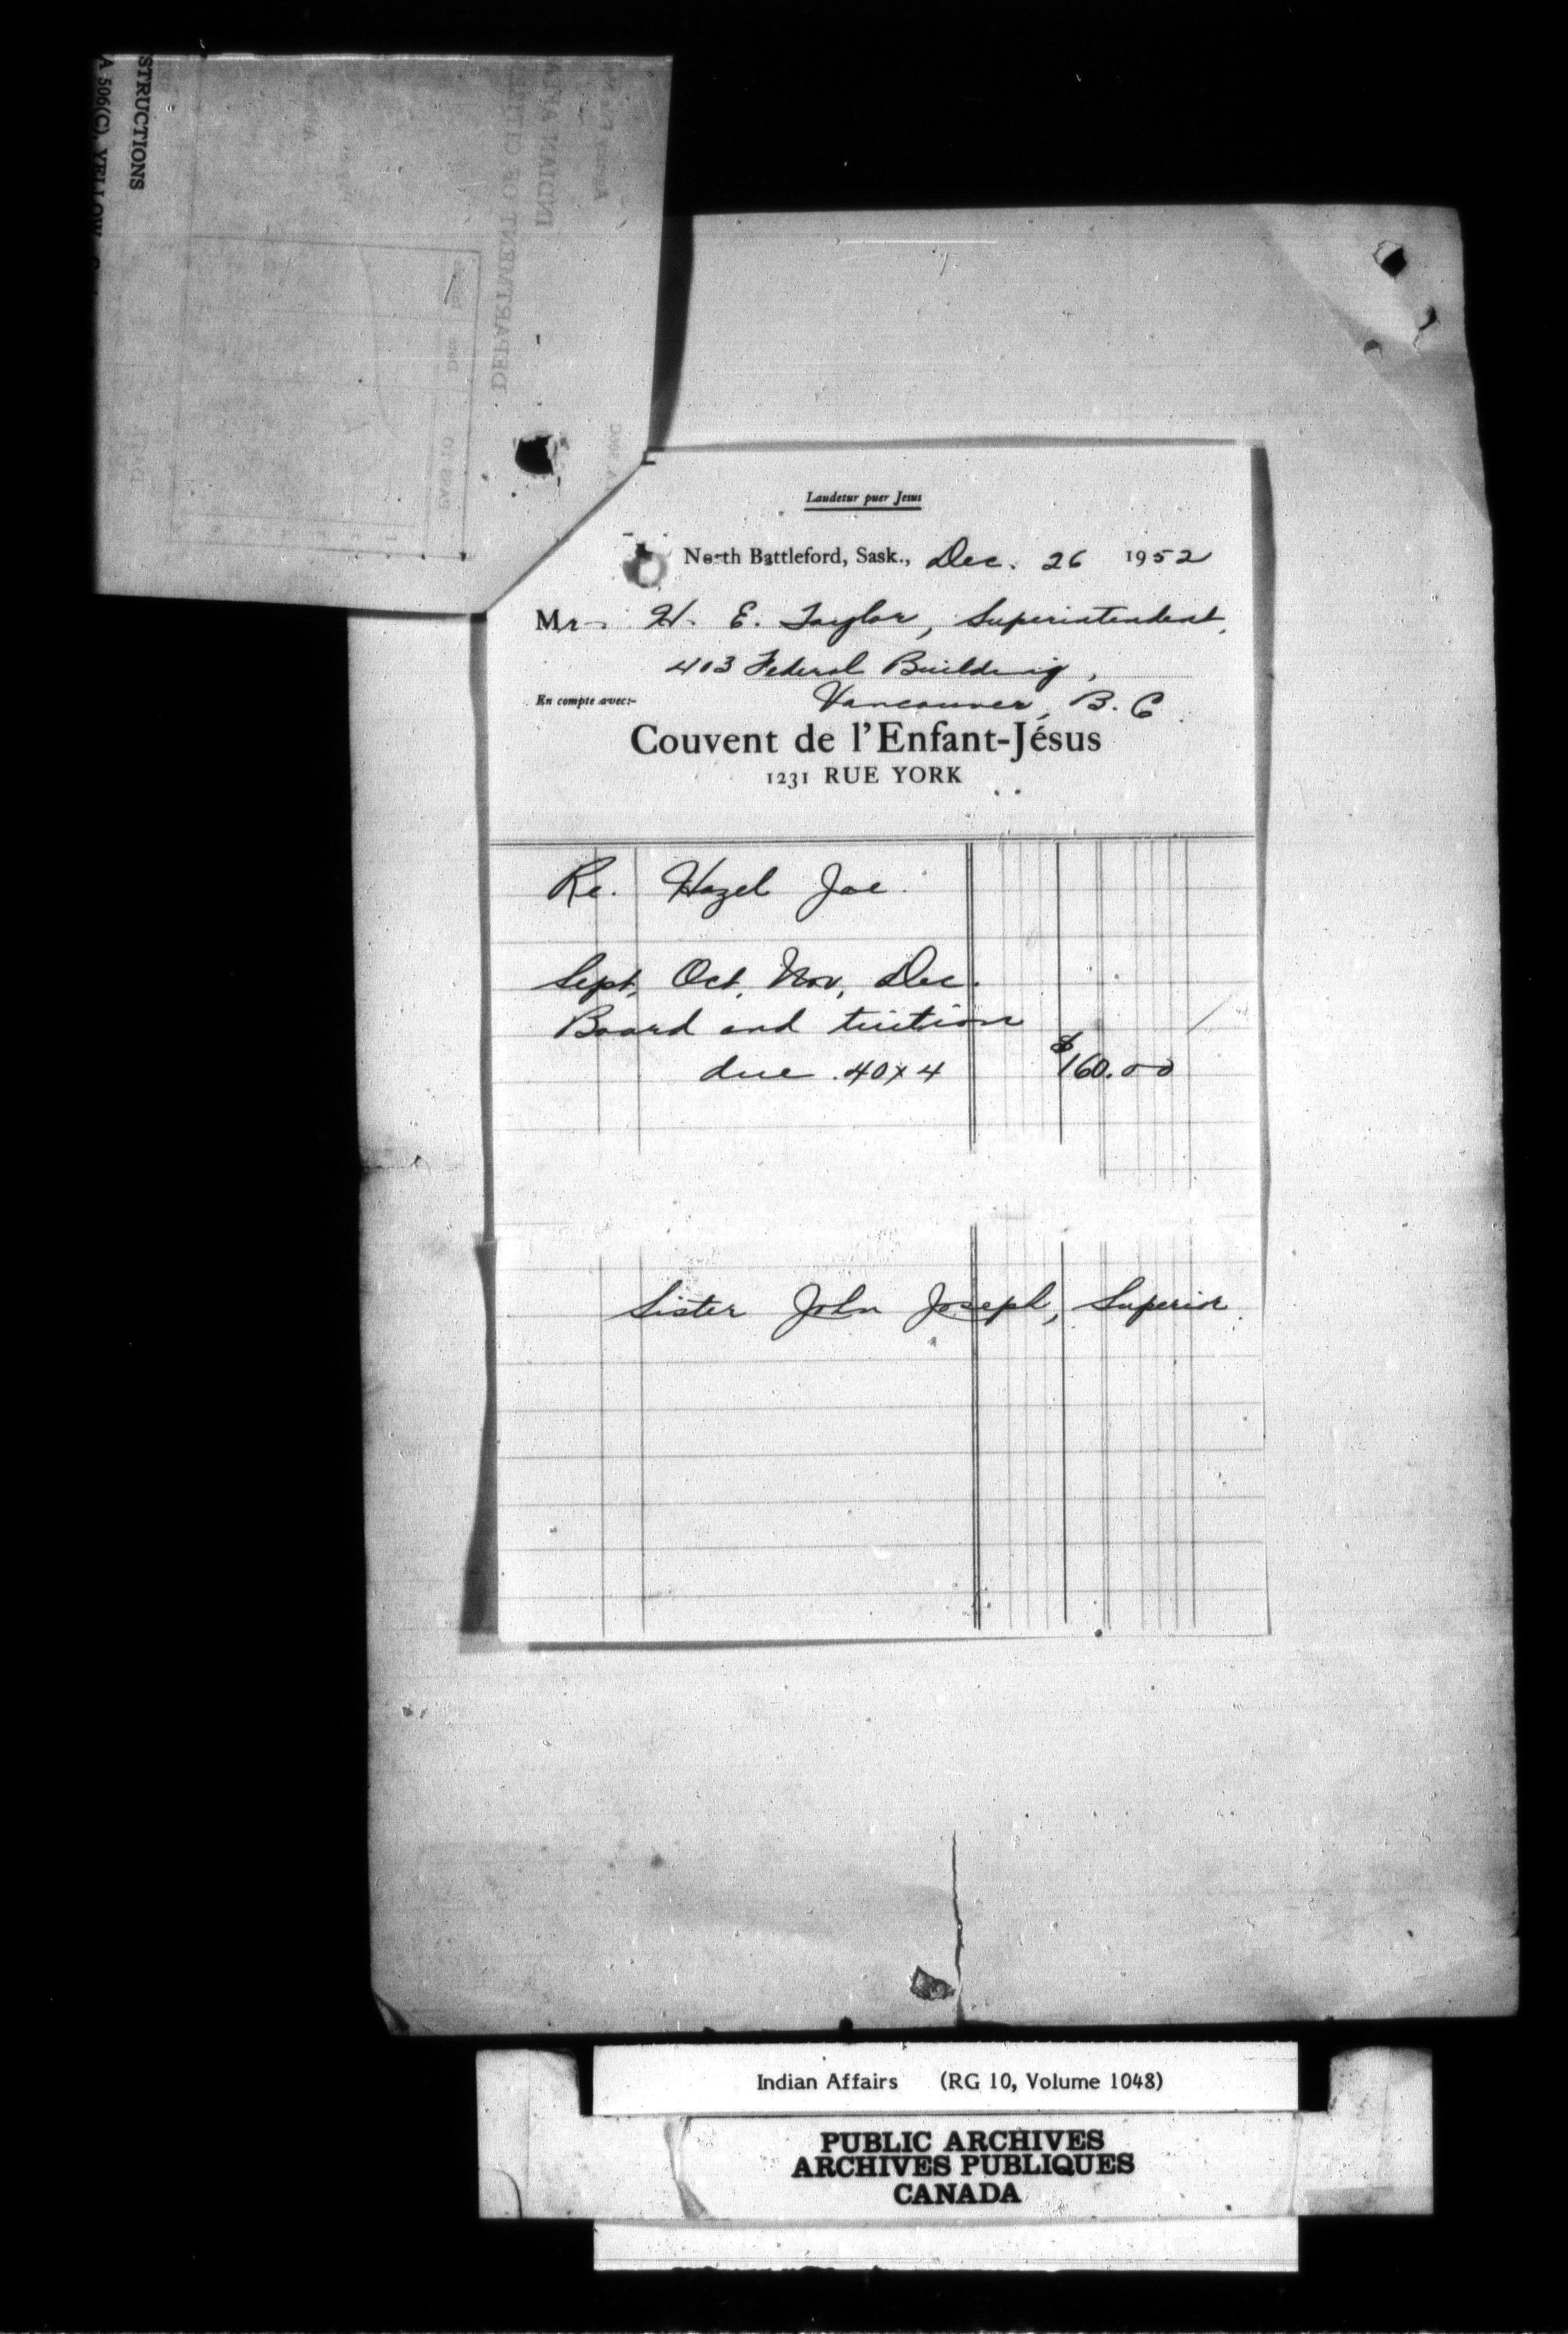 STRUCTIONS
A 506(C), YELLOW
DEPARTMENT OF CITI
INDIAN AFFA
PASS TO
Date
Laudetur puer Jesus
North Battleford, Sask., Dec. 26 1952
Mr. H. E. Taylor, Superintendent,
403 Federal Building,
En compte avec:- Vancouver, B. C.
Couvent de l'Enfant-Jésus
1231 RUE YORK
Re. Hazel Joe.
Sept, Oct, Nov, Dec.
Board and tuition
due 40 x 4 $160.00
Sister John Joseph, Superior.
Indian Affairs (RG 10, Volume 1048)
PUBLIC ARCHIVES
ARCHIVES PUBLIQUES
CANADA